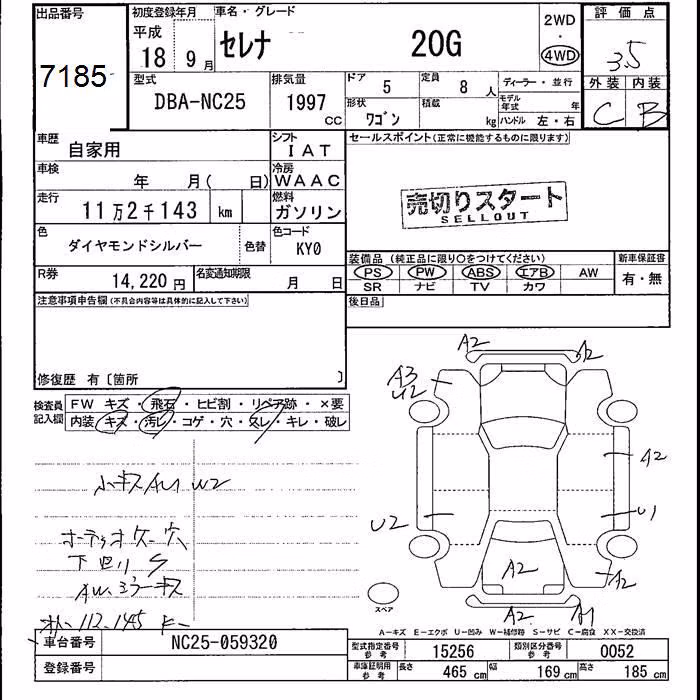 出品番号
7185
初度登録年月
平成
18 9月
車名・グレード
セレナ 20G
2WD
・
4WD
評価点
3.5
外装 内装
C B
型式
DBA-NC25
排気量
1997
CC
ドア
5
定員
8人
形状
ワゴン
積載
kg
ディーラー・並行
モデル年式 年
ハンドル 左・右
車歴
自家用
シフト
IAT
車検
年 月( 日)
冷房
WAAC
走行
11万2千143 km
燃料
ガソリン
色
ダイヤモンドシルバー
色替
色コード
KY0
R券
14,220円
名変通知期限
月 日
セールスポイント(正常に機能するものに限ります)
売切りスタート
SELLOUT
装備品(純正品に限り○をつけてください)
PS PW ABS エアB AW
SR ナビ TV カワ
新車保証書
有・無
後日品
注意事項申告欄(不具合内容等は具体的に記入して下さい)
修復歴 有〔箇所 〕
検査員記入欄
FW キズ・飛石・ヒビ割・リペア跡・×要
内装・キズ・汚レ・コゲ・穴・スレ・キレ・破レ
小キズ AU1 W2
下回り S
112,145
A2
A2
A3
U2
A2
U2
U1
A2
A2
A2
A1
スペア
A-キズ E-エクボ U-凹み W-補修跡 S-サビ C-腐食 XX-交換済
車台番号
NC25-059320
登録番号
型式指定番号
参考
15256
類別区分番号
参考
0052
車庫証明用
参考
長さ 465 cm 幅 169 cm 高さ 185 cm